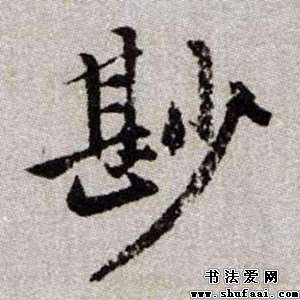 尠
书法爱网
www.shufaai.com